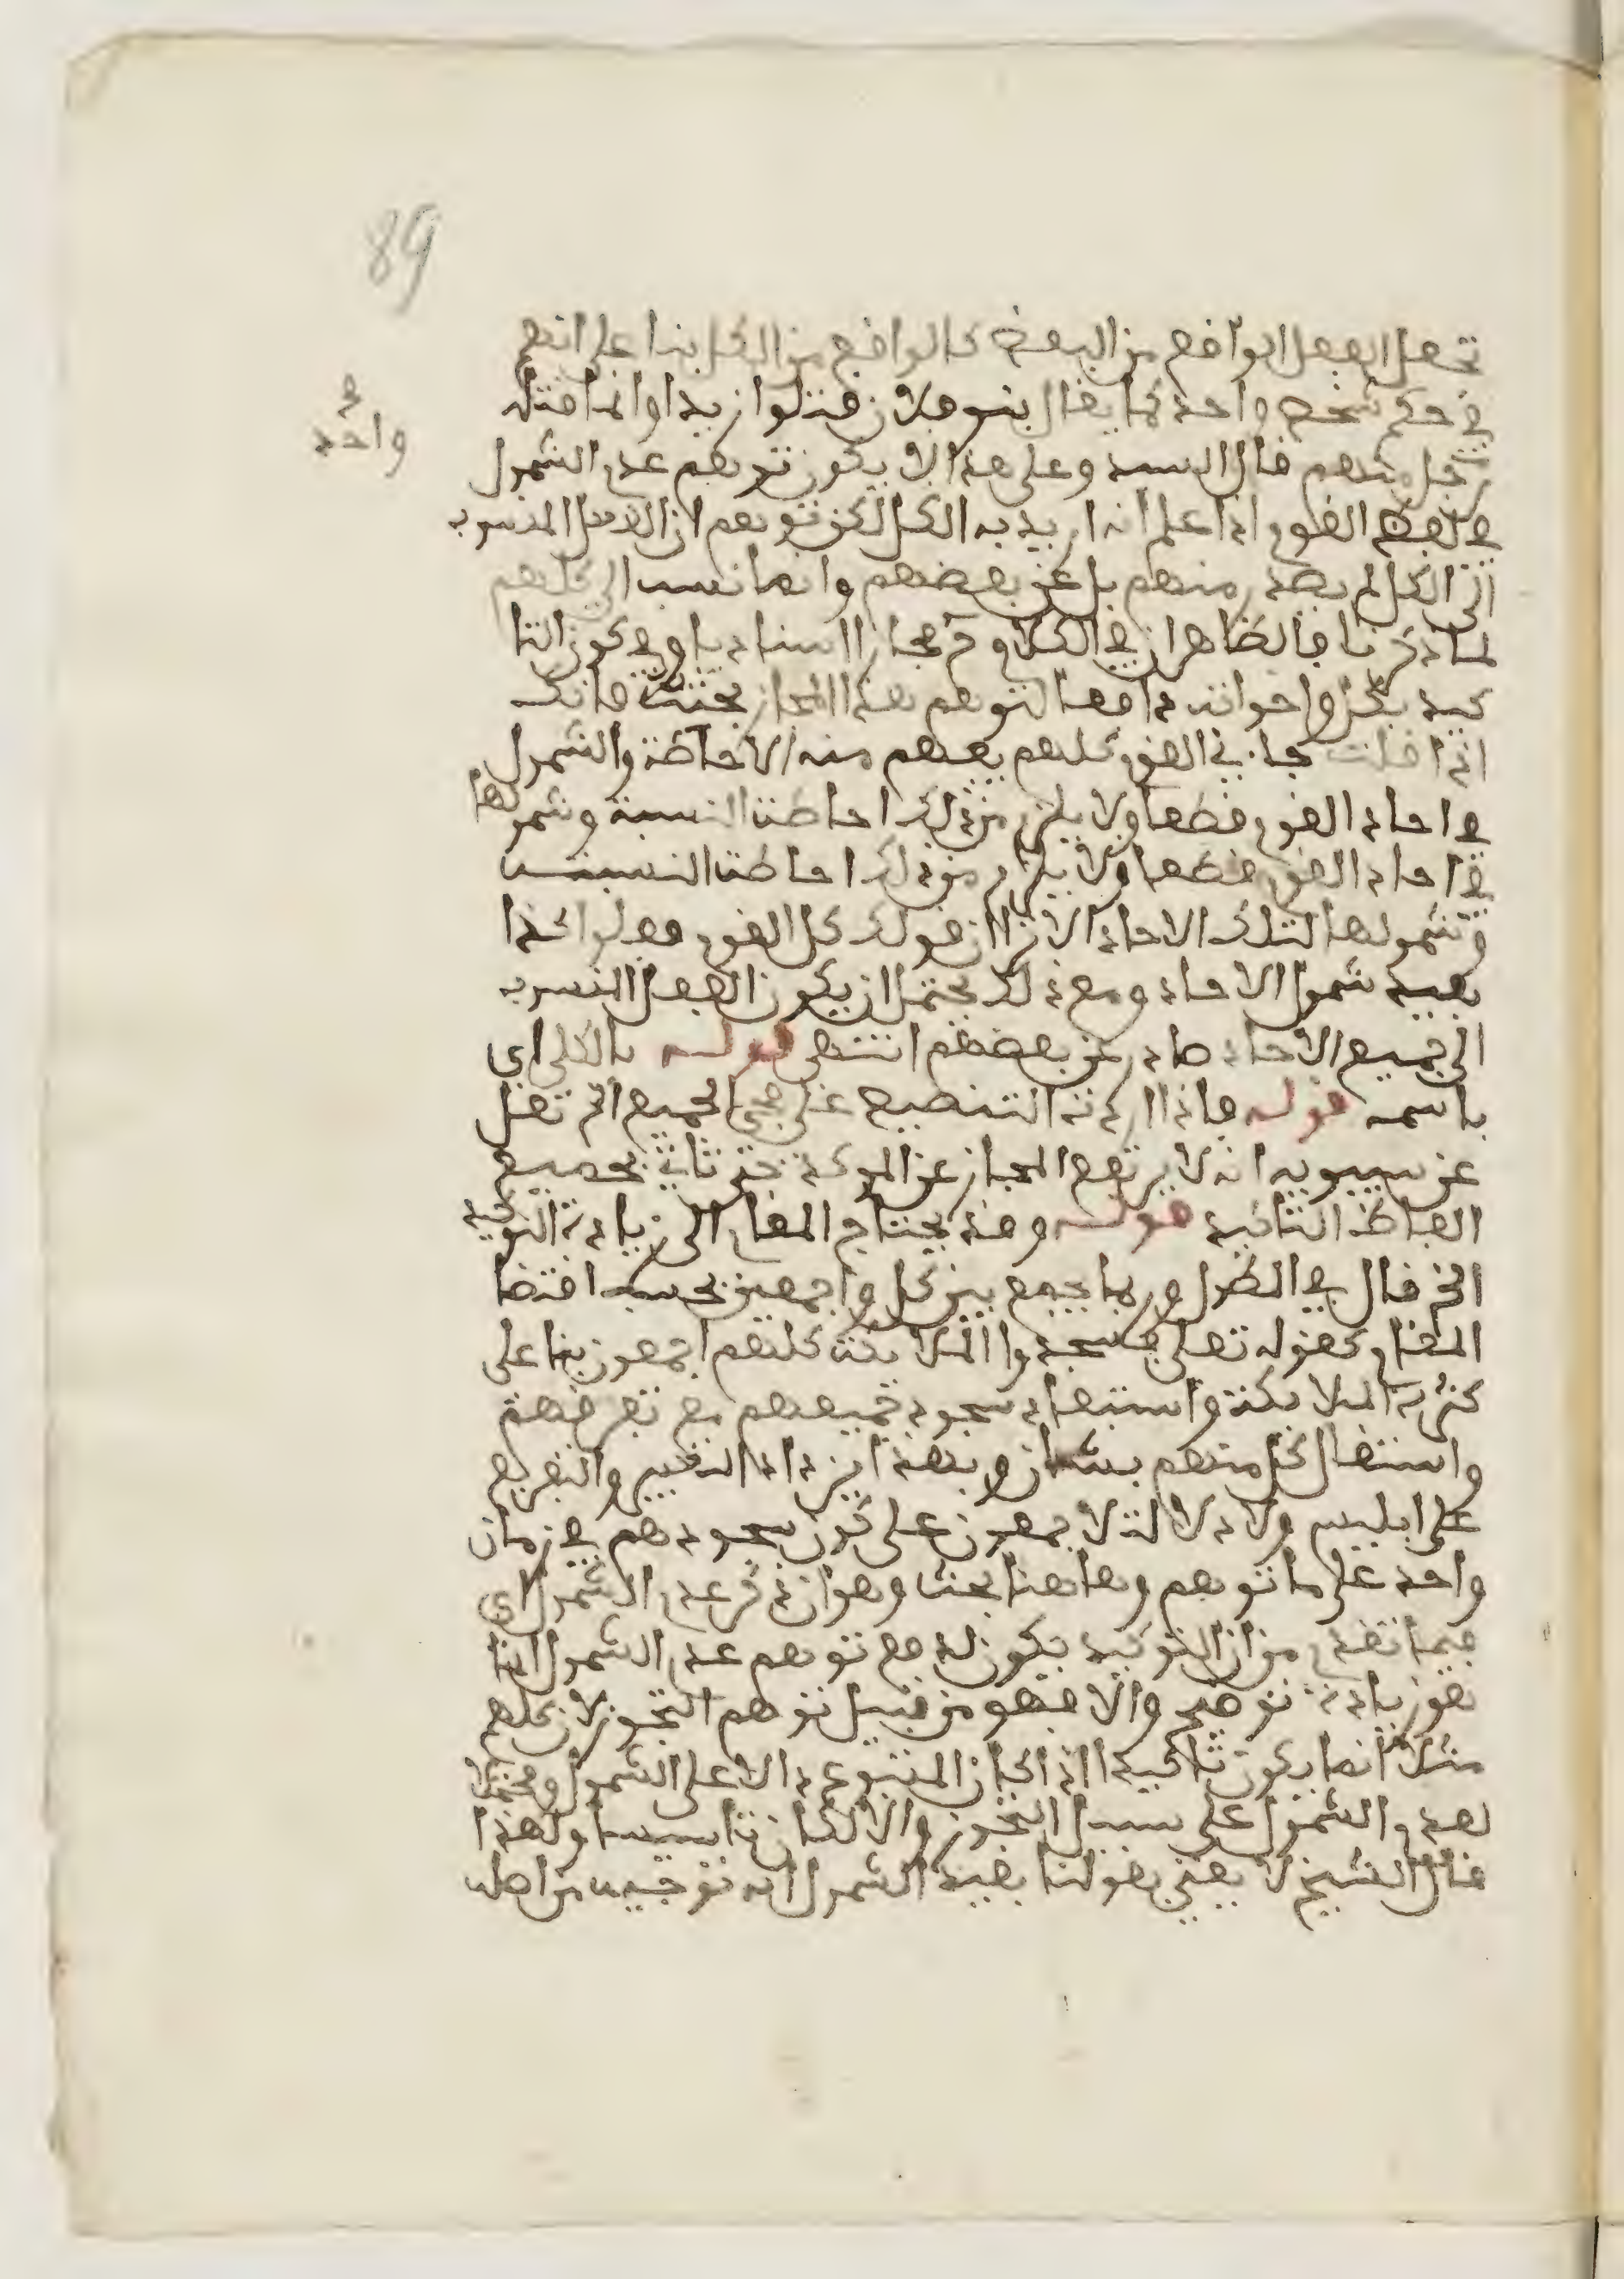 89
تجعل الفعل الواقع من البعض كالواقع من الكل بناء على انهم
في حكم شخص واحد كما يقال بنو فلان قتلوا زيدا وانما قتله
واحد
رجل منهم قال السيد وعلى هذا لا يكون توهم عدم الشمول
في لفظ القوم اذا علم انه اريد به الكل لكن توهم ان الفعل المنسوب
الى الكل لم يصدر منهم بل عن بعضهم وانما نسب الى كلهم
لما ذكرنا فالظاهر ان في الكلام مجاز الاسناد يا وفي كون التا
كيد بكل واخواته دافعا لتوهم هذا المجاز بحث فانك
اذا قلت جاءني القوم كلهم يفهم منه الاحاطة والشمول
في احاد القوم قطعا ولا يلزم من ذلك احاطة النسبة وشمولها
في احاد القوم قطعا ولا يلزم من ذلك احاطة النسبة
وشمولها لتلك الاحاد الا ترى ان قولك كل القوم فعلوا كذا
يفيد شمول الاحاد ومع ذلك يحتمل ان يكون الفعل المنسوب
الى جميع الاحاد صادر عن بعضهم انتهى قوله بالكلى اي
باسمه قوله فاذا اردت التنصيص على مجيء الجميع الخ نقل
عن سيبويه انه لا يرتفع المجاز عن الموكد حتى تاتي بجميع
الفاظ التاكيد قوله وقد يحتاج المقام الى زيادة التوكيد
الخ قال في المطول وربما يجمع بين كل واجمعين بحسب اقتضا
المقام كقوله تعلى فسجد الملائكة كلهم اجمعون بنا على
كثرة الملائكة واستبعاد سجود جميعهم مع تفرقهم
واشتغال كل منهم بشان وبهذا يزداد التعيير والتقريع
على ابليس ولا دلالة لاجمعون على كون سجودهم في زمان
واحد على ما توهم وهاهنا بحث وهو ان ذكر عدم الشمول اي
فيما تقدم من ان التوكيد يكون لدفع توهم عدم الشمول انما
هو زيادة توضيح والا فهو من قبيل توهم التجوز لان كلهم
مثلا انما يكون تاكيدا اذا كان المتبوع دالا على الشمول ومحتملا
لعدم الشمول على سبيل التجوز والا لكان تاسيسا ولهذا
قال الشيخ لا يعني بقولنا يفيد الشمول انه توجيه من اصله